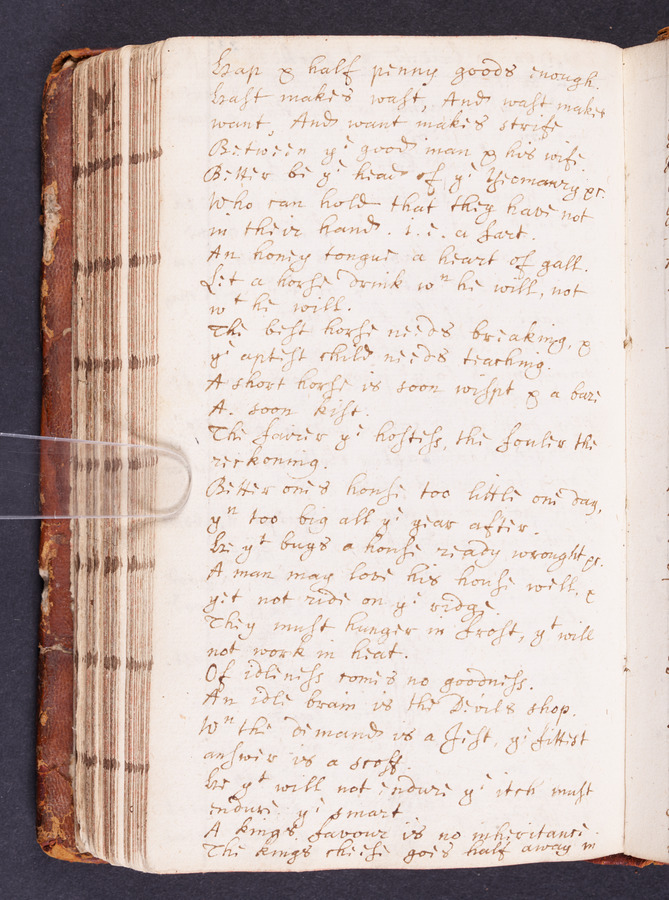 Hap & half penny goods enough.
Hast makes wast, And wast makes
want, And want makes strife
Between ye good man & his wife.
Better be ye head of ye Yeomanry &c.
Who can hold that they have not
in their hand. i. e. a fart.
An honey tongue a heart of gall.
Let a horse drink wn he will, not
wt he will.
The best horse needs breaking, &
ye aptest child needs teaching.
A short horse is soon wispt & a bare
A. soon kist.
The fairer ye hostess, the fouler the
reckoning.
Better ones house too little one day,
yn too big all ye year after.
He yt buys a house ready wrought &c.
A man may love his house well, &
yet not ride on ye ridge.
They must hunger in frost, yt will
not work in heat.
Of idleness comes no goodness.
An idle brain is the Devils shop.
Wn the demand is a Jest, ye fittest
answer is a scoff.
He yt will not endure ye itch must
endure ye smart
A kings favour is no inheritance.
The kings cheese goes half away in